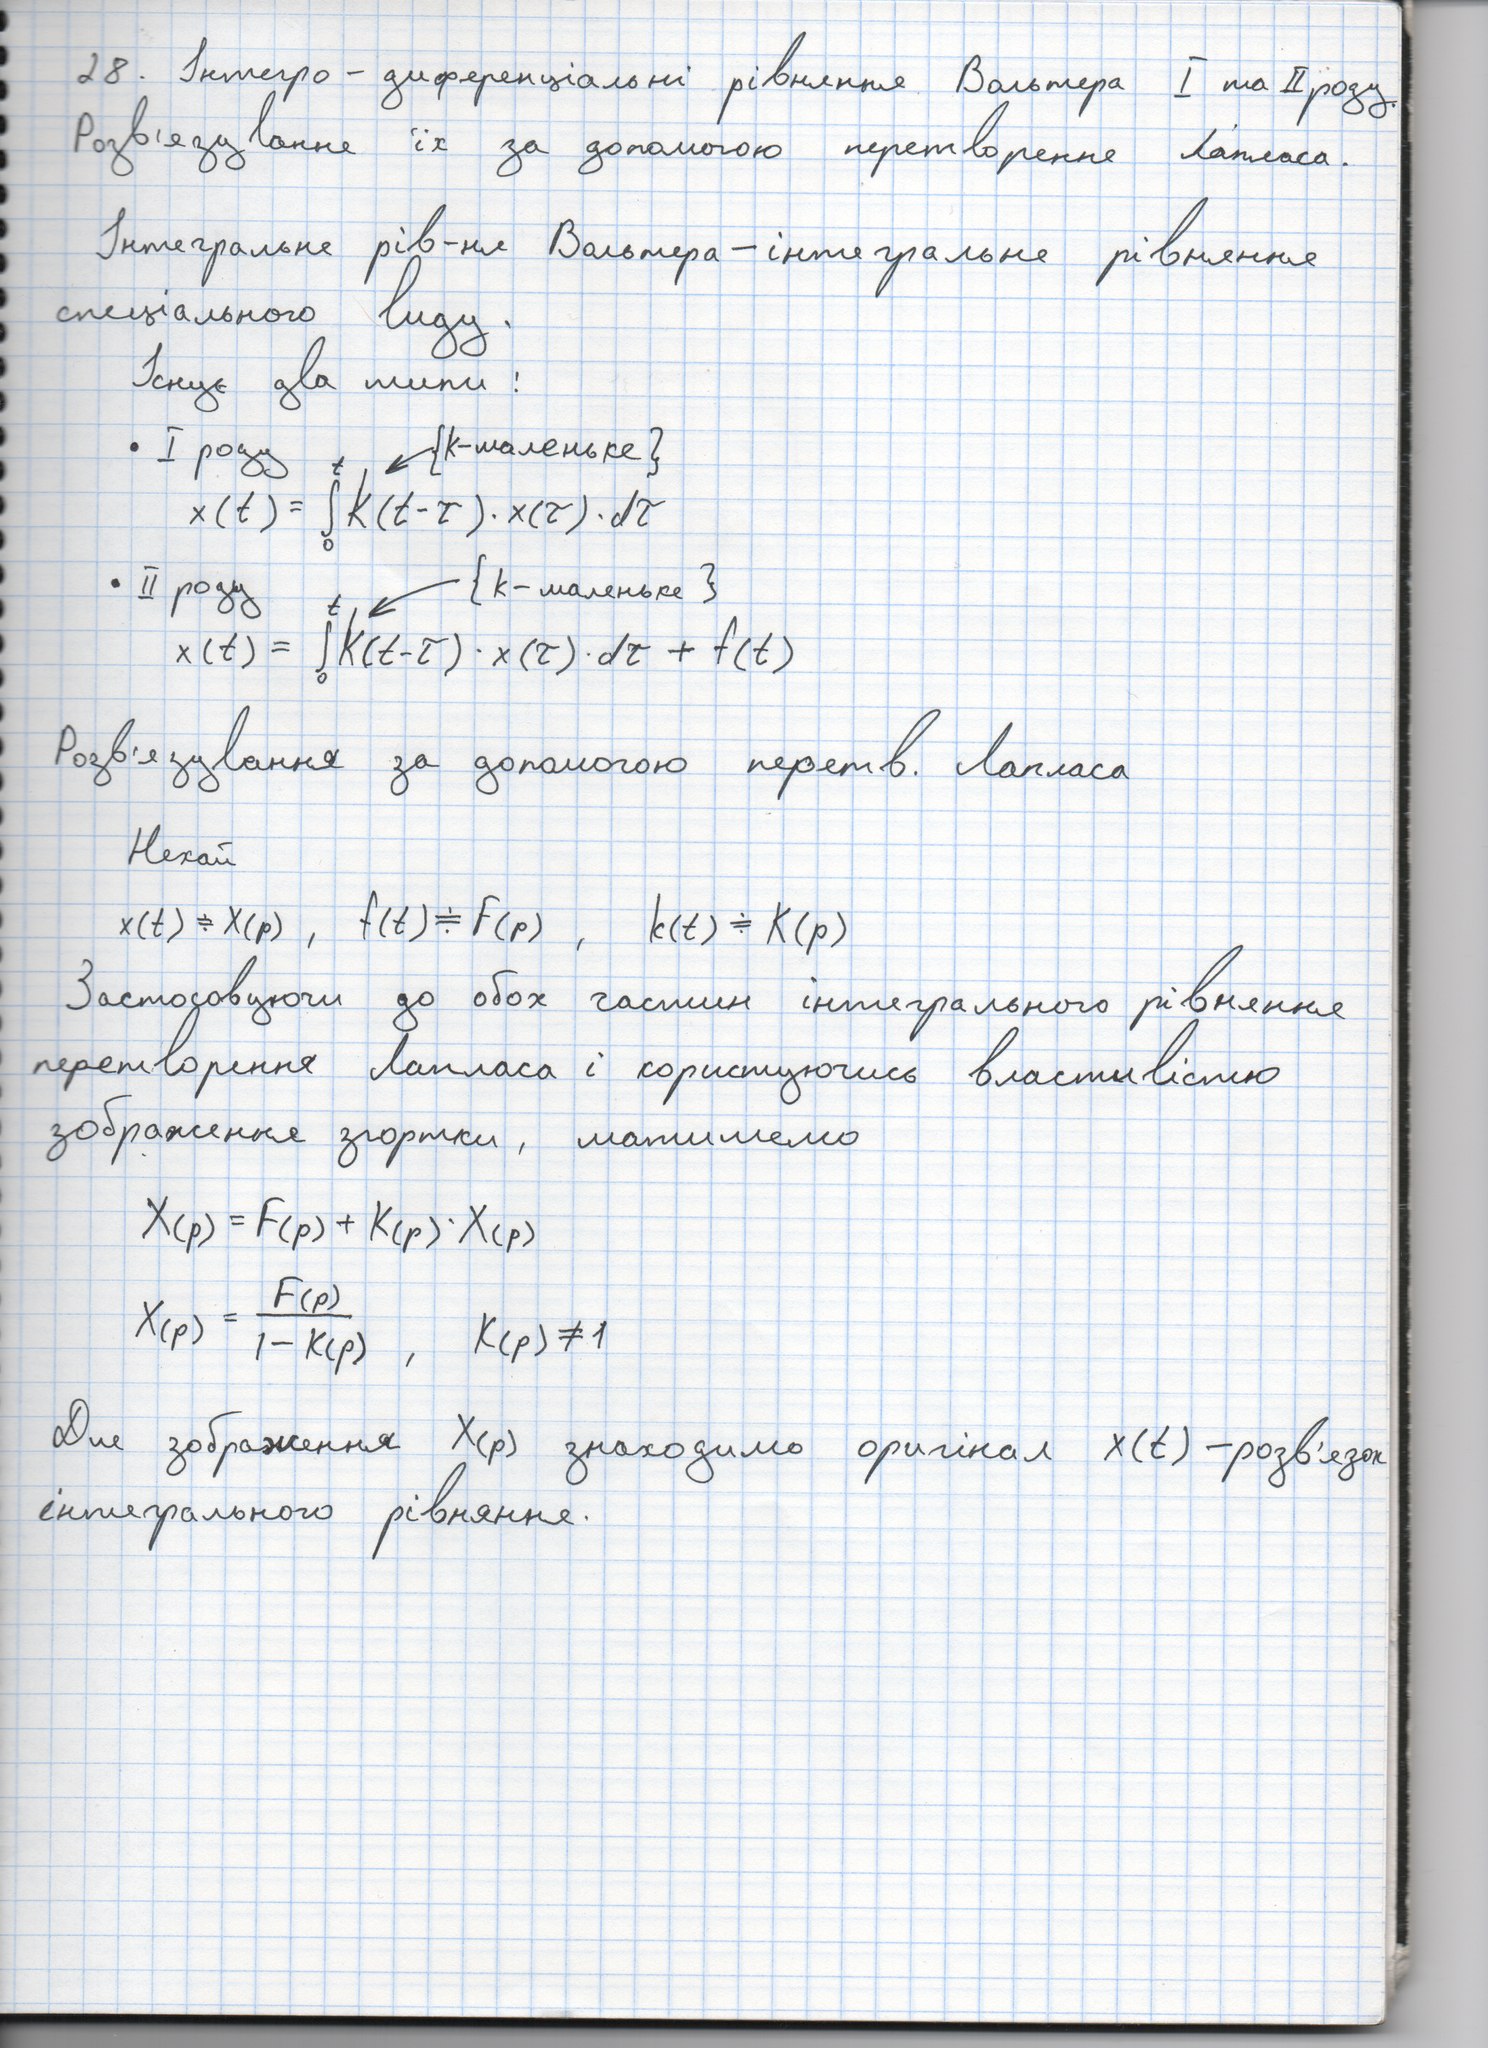 28. Інтегро-диференціальні рівняння Вольтера I та II роду.
Розв'язування їх за допомогою перетворення Лапласа.
Інтегральне рів-ня Вольтера – інтегральне рівняння
спеціального виду.
Існує два типи:
• I роду {k-маленьке}
x(t) = ∫₀ᵗ k(t-τ)·x(τ)·dτ
• II роду {k-маленьке}
x(t) = ∫₀ᵗ k(t-τ)·x(τ)·dτ + f(t)
Розв'язування за допомогою перетв. Лапласа
Нехай
x(t) ≑ X(p), f(t) ≑ F(p), k(t) ≑ K(p)
Застосовуючи до обох частин інтегрального рівняння
перетворення Лапласа і користуючись властивістю
зображення згортки, матимемо
X(p) = F(p) + K(p)·X(p)
X(p) = F(p) / (1 - K(p)), K(p) ≠ 1
Для зображення X(p) знаходимо оригінал x(t) – розв'язок
інтегрального рівняння.